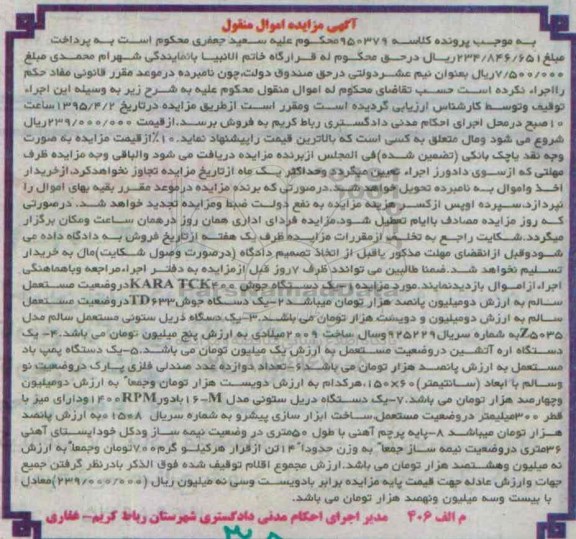 آگهی مزایده اموال منقول
به موجب پرونده کلاسه ۹۵۰۳۷۹محکوم علیه سعید جعفری محکوم است به پرداخت
مبلغ۲۳۴/۸۴۶/۶۵۱ریال درحق محکوم له قرارگاه خاتم الانبیا بانمایندگی شهرام محمدی مبلغ
۷/۵۰۰/۰۰۰ریال بعنوان نیم عشردولتی درحق صندوق دولت،چون نامبرده درموعد مقرر قانونی مفاد حکم
رااجراء نکرده است حسب تقاضای محکوم له اموال منقول محکوم علیه به شرح زیر به وسیله این اجراء
توقیف وتوسط کارشناس ارزیابی گردیده است ومقرر است ازطریق مزایده درتاریخ ۱۳۹۵/۴/۲ساعت
۱۰صبح درمحل اجرای احکام مدنی دادگستری رباط کریم به فروش برسد.ازقیمت ۲۳۹/۰۰۰/۰۰۰ریال
شروع می شود ومال متعلق به کسی است که بالاترین قیمت راپیشنهاد نماید.۱۰٪ازقیمت مزایده به صورت
وجه نقد یاچک بانکی (تضمین شده)فی المجلس ازبرنده مزایده دریافت می شود والباقی وجه مزایده ظرف
مهلتی که ازسوی دادورز اجراء تعیین میگردد وحداکثر یک ماه ازتاریخ مزایده تجاوز نخواهدکرد.ازخریدار
اخذ واموال به نامبرده تحویل خواهد شد.درصورتی که برنده مزایده درموعد مقرر بقیه بهای اموال را
نپردازد.سپرده اوپس ازکسر هزینه مزایده به نفع دولت ضبط ومزایده تجدید خواهد شد. درصورتی
که روز مزایده مصادف باایام تعطیل شود.مزایده فردای اداری همان روز درهمان ساعت ومکان برگزار
میگردد.شکایت راجع به تخلف ازمقررات مزایده ظرف یک هفته ازتاریخ فروش به دادگاه داده می
شودوقبل ازانقضای مهلت مذکور یاقبل از اتخاذ تصمیم دادگاه (درصورت وصول شکایت)مال به خریدار
تسلیم نخواهد شد.ضمنا طالبین می توانند ظرف ۷روز قبل ازمزایده به دفتر اجراء مراجعه وباهماهنگی
اجراء ازاموال بازدیدنمایند.مورد مزایده ۱-یک دستگاه جوش ۴۰۰ KARA TCKدروضعیت مستعمل
سالم به ارزش دومیلیون پانصد هزار تومان میباشد ۲-یک دستگاه جوش TD۶۳۳دروضعیت مستعمل
سالم به ارزش دومیلیون و دویست هزار تومان می باشد.۳-یک دسگاه دریل ستونی مستعمل سالم مدل
Z۵۰۳۵به شماره سریال۹۲۵۲۲۹وسال ساخت ۲۰۰۹میلادی به ارزش پنج میلیون تومان می باشد.۴-یک
دستگاه اره آتشین دروضعیت مستعمل به ارزش یک میلیون تومان می باشد.۵-یک دستگاه پمپ باد
مستعمل به ارزش پانصد هزار تومان می باشد.۶-تعداد دوازده عدد صندلی فلزی پارک دروضعیت نو
وسالم با ابعاد (سانتیمتر)۱۵۰×۶۰،هرکدام به ارزش دویست هزار تومان وجمعا" به ارزش دومیلیون
وچهارصد هزار تومان می باشد.۷-یک دستگاه دریل ستونی مدل M-۱۶بادور۱۴۰۰RPMودارای میز با
قطر ۳۰۰میلیمتر دروضعیت مستعمل،ساخت ابزار سازی پیشرو به شماره سریال ۰۱۵۰۸به ارزش پانصد
هزار تومان میباشد ۸-پایه پرچم آهنی با طول ۵۰متری در وضعیت نیمه ساز ودکل خودایستای آهنی
۳۶متری دروضعیت نیمه ساز جمعا" به وزن حدودا"۱۴تن ازقرار هرکیلو گرم۷۰۰تومان وجمعا"به ارزش
نه میلیون وهشتصد هزار تومان می باشد.ارزش مجموع اقلام توقیف شده فوق الذکر بادرنظر گرفتن جمیع
جهات وارزش عادله جهت قیمت پایه مزایده برابر بادویست وسی نه میلیون ریال (۲۳۹/۰۰۰/۰۰۰)معادل
با بیست وسه میلیون ونهصد هزار تومان می باشد.
م الف ۴۰۶ مدیر اجرای احکام مدنی دادگستری شهرستان رباط کریم- غفاری